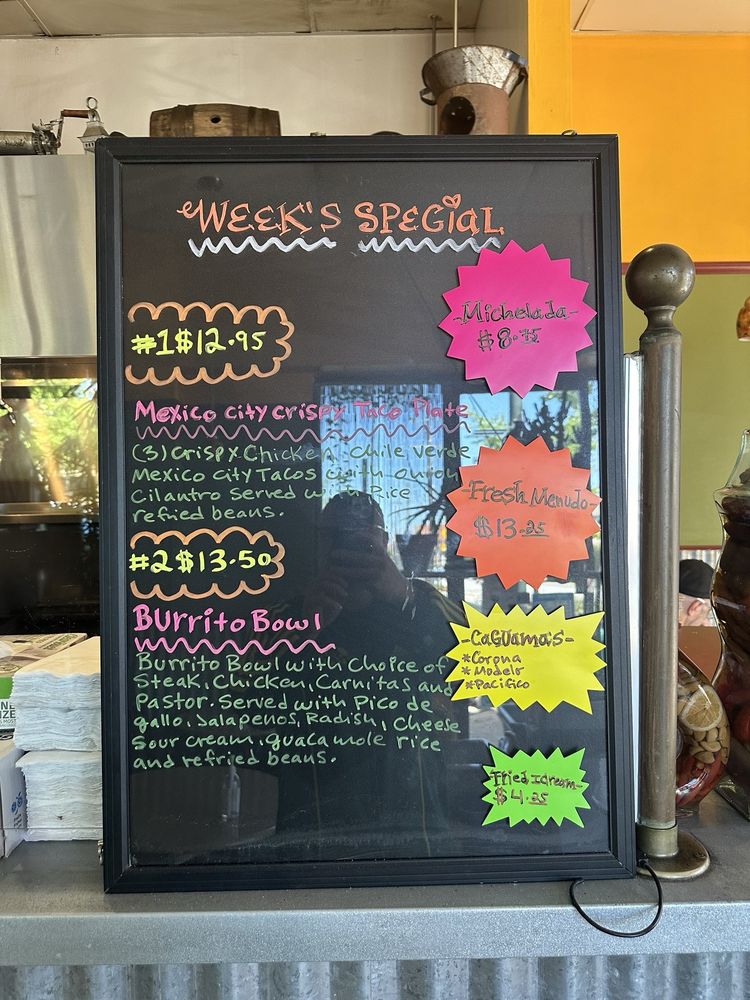 WEEK'S SPECIAL
#1 $12.95
Mexico city crispy Taco Plate
(3) crispy Chicken Chile verde
Mexico city Tacos with onion
Cilantro Served with Rice
refried beans.
#2 $13.50
Burrito Bowl
Burrito Bowl with Choice of
Steak, Chicken, Carnitas and
Pastor. Served with Pico de
gallo, Jalapenos, Radish, Cheese
Sour cream, guacamole rice
and refried beans.
-Michelada-
-Fresh Menudo-
$13.25
-Caguama's-
*Corona
*Modelo
*Pacifico
$4.25